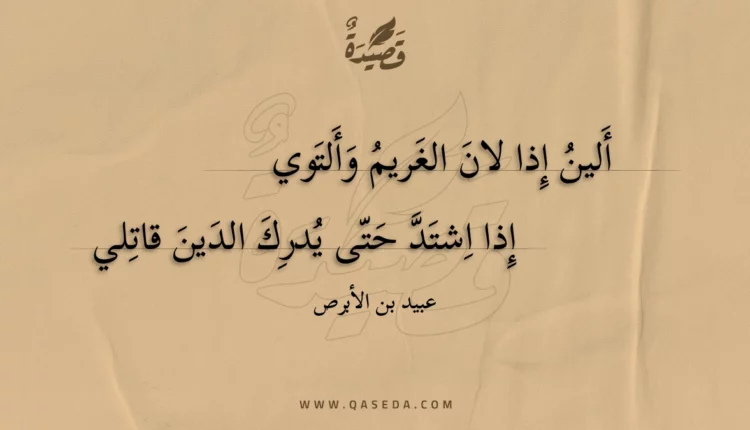 قَصِيْدَةٌ
أَلينُ إِذا لانَ الغَريمُ وَأَلتَوي
إِذا اِشتَدَّ حَتّى يُدرِكَ الدَينَ قاتِلي
عبيد بن الأبرص
WWW.QASEDA.COM